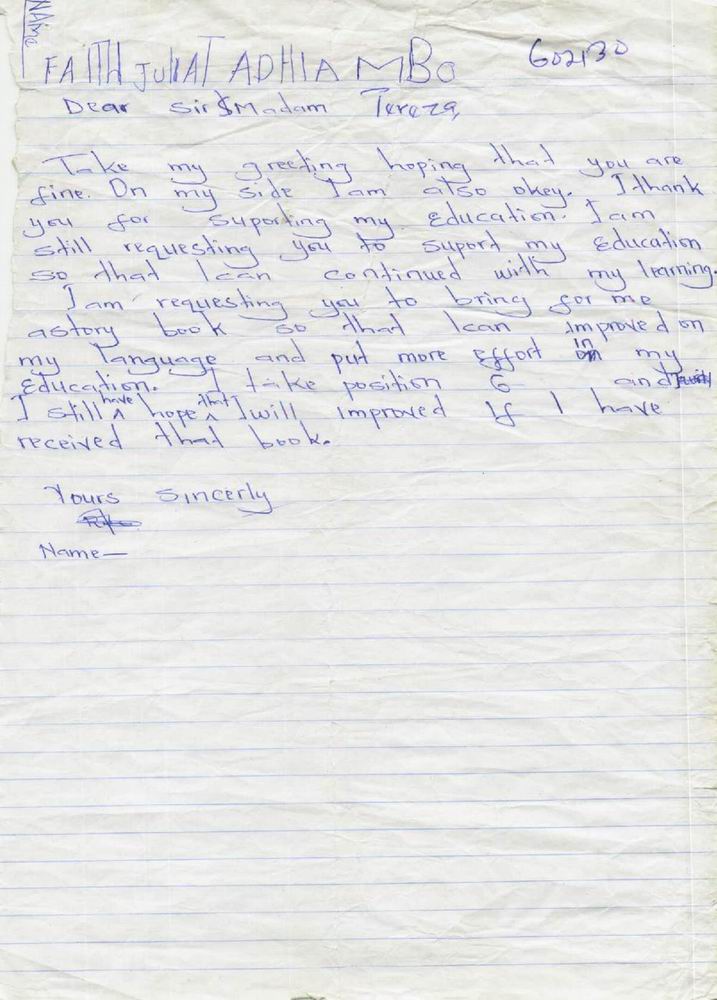 Name
FAITH JULIAT ADHIAMBO 602130
Dear Sir $ Madam Tereza,
Take my greeting hoping that you are
fine. On my side I am also okey. I thank
you for suporting my education. I am
still requesting you to suport my Education
so that I can continued with my learning.
I am requesting you to bring for me
a story book so that I can improved on
my language and put more effort in my
Education. I take position 6 and
I still have hope that I will improved If I have
received that book.
Yours Sincerly
Name—